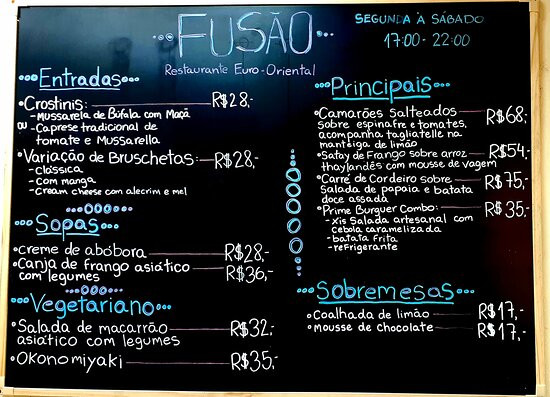 FUSÃO
Restaurante Euro-Oriental
SEGUNDA À SÁBADO
17:00-22:00
Entradas
Crostinis: R$28,-
-Mussarela de Búfala com Maçã
ou -Caprese tradicional de
tomate e Mussarella
Variação de Bruschetas: R$28,-
-clássica
-Com manga
-Cream cheese com alecrim e mel
Sopas
creme de abóbora R$28,-
Canja de frango asiático R$36,-
com legumes
Vegetariano
Salada de macarrão R$32,-
asiático com legumes
Okonomiyaki R$35,-
Principais
Camarões Salteados R$68,-
sobre espinafre e tomates,
acompanha tagliatelle na
manteiga de limão
Satay de Frango sobre arroz R$54,-
thaylandês com mousse de vagem
Carré de Cordeiro sobre R$75,-
Salada de papaia e batata
doce assada
Prime Burguer Combo: R$35,-
-Xis Salada artesanal com
cebola caramelizada
-batata frita
-refrigerante
Sobremesas
Coalhada de limão R$17,-
mousse de chocolate R$17,-